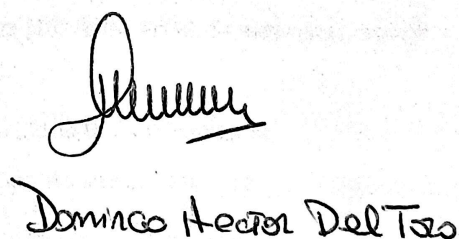 Domingo Hector Del Toro